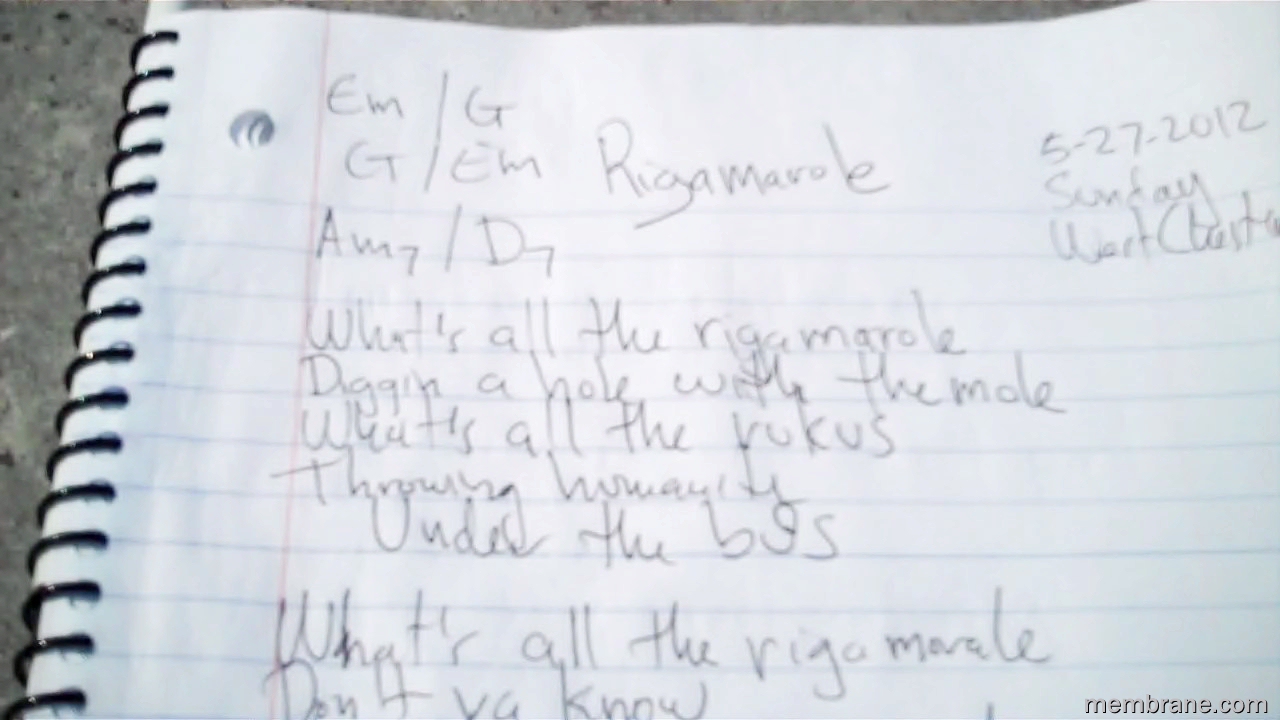 Em / G
G / Em Rigamarole
5-27-2012
Sunday
West Chester
Am7 / D7
What's all the rigamarole
Diggin a hole with the mole
What's all the rukus
Throwing humanity
Under the bus
What's all the rigamarole
Don't ya know
membrane.com